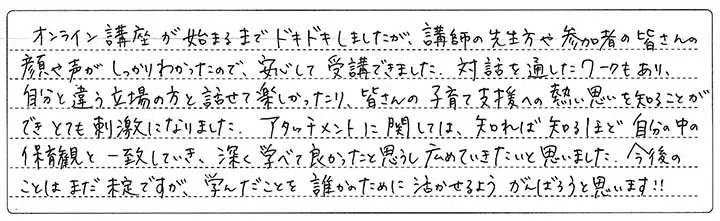 オンライン講座が始まるまでドキドキしましたが、講師の先生方や参加者の皆さんの
顔や声がしっかりわかったので、安心して受講できました. 対話を通したワークもあり、
自分と違う立場の方と話せて楽しかったり、皆さんの子育て支援への熱い思いを知ることが
できとても刺激になりました. アタッチメントに関しては、知れば知るほど自分の中の
保育観と一致していき、深く学べて良かったと思うし広めていきたいと思いました. 今後の
ことはまだ未定ですが、学んだことを誰かのために活かせるようがんばろうと思います!!